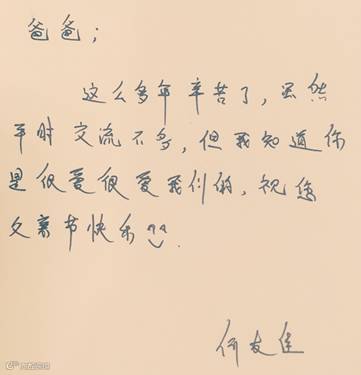 爸爸;
这么多年辛苦了,虽然
平时交流不多,但我知道你
是很爱很爱我们的,祝您
父亲节快乐
何友佳